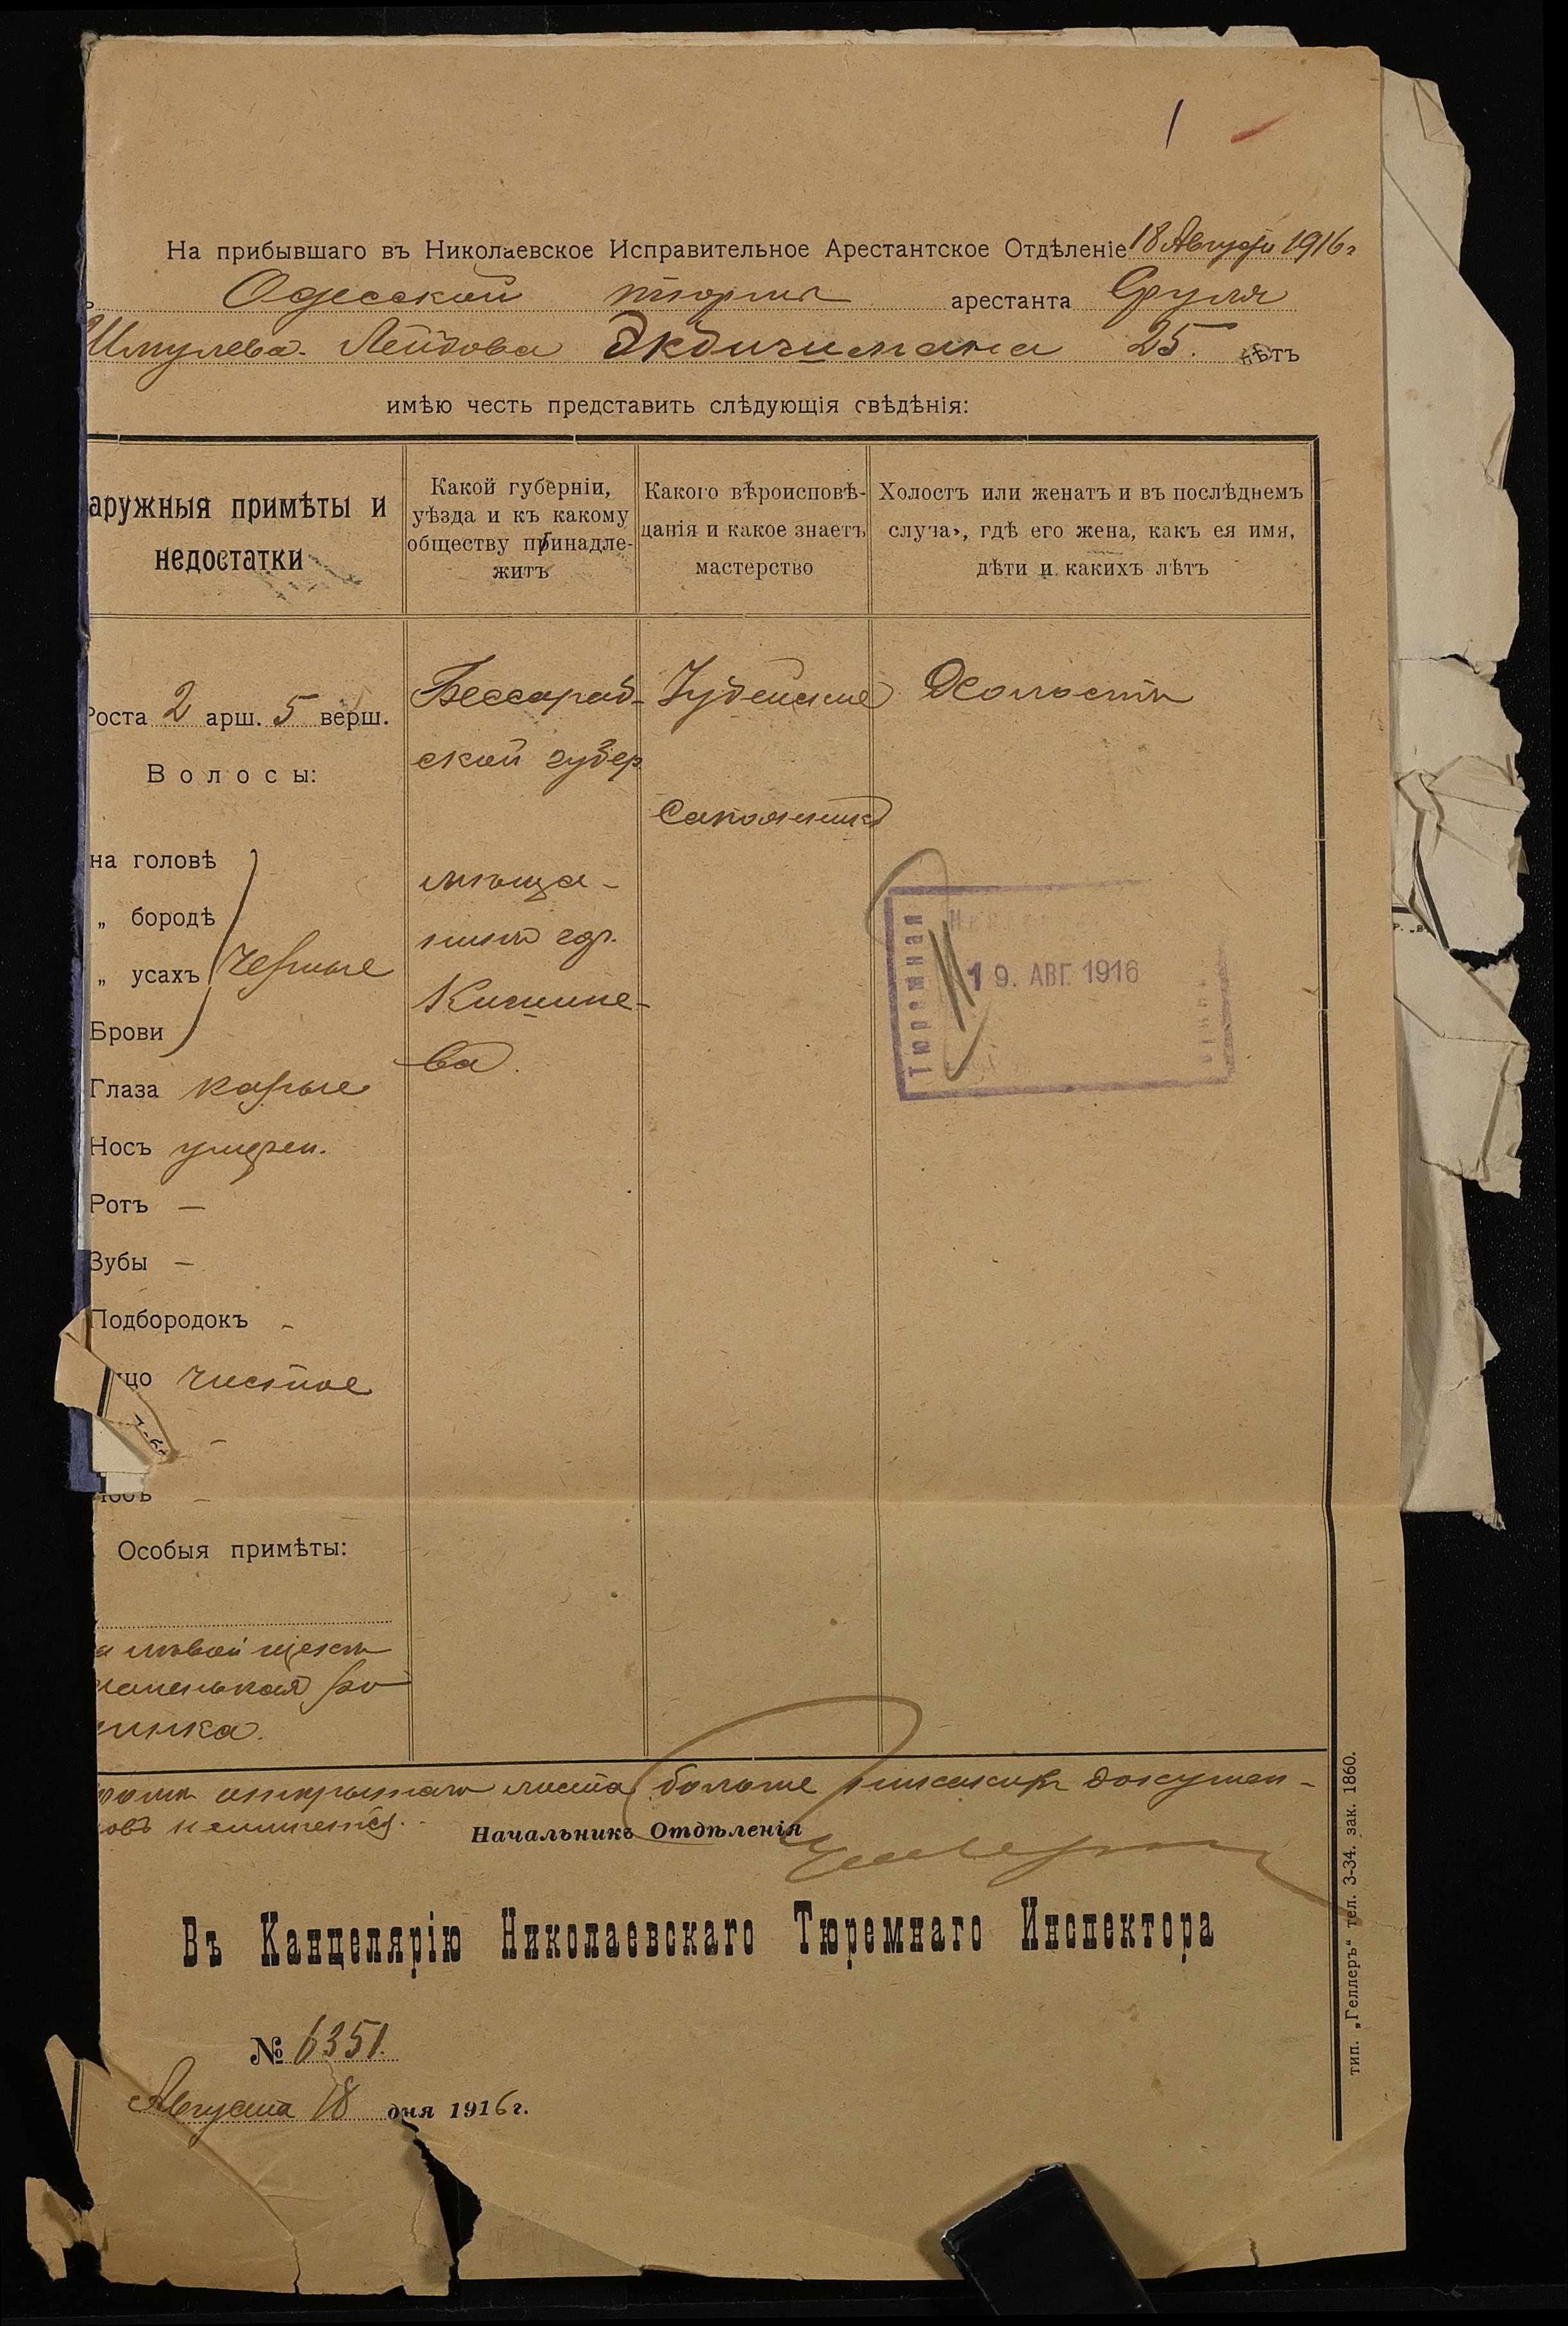 На прибывшаго въ Николаевское Исправительное Арестантское Отдѣленіе 18 Августа 1916 г
Одесской тюрьмы арестанта Сруля
Шмулева Лейбова 25. лѣтъ
имѣю честь представить слѣдующія свѣдѣнія:
аружныя примѣты и недостатки
Какой губерніи, уѣзда и къ какому обществу принадле-житъ
Какого вѣроисповѣ-данія и какое знаетъ мастерство
Холостъ или женатъ и въ послѣднемъ случаѣ, гдѣ его жена, какъ ея имя, дѣти и какихъ лѣтъ
Роста 2 арш. 5 верш.
Волосы:
на головѣ
„ бородѣ
„ усахъ черные
Брови
Глаза карые
Носъ умѣрен.
Ротъ —
Зубы —
Подбородокъ -
цо чистое
-
-
Особыя примѣты:
а лѣвой щекѣ
маленькая ро
динка.
Бессараб-
ской губер
мѣща-
нинъ гор.
Кишине-
ва.
Іудейское
Сапожникъ
Холостъ
Тюремная
19. АВГ. 1916
открытаго листа больше никакихъ докумен-
овъ не имѣется.
Начальникъ Отдѣленія
Въ Канцелярію Николаевскаго Тюремнаго Инспектора
№ 6351.
Августа 18 дня 1916 г.
тип. „Геллеръ" тел. 3-34. зак. 1860.